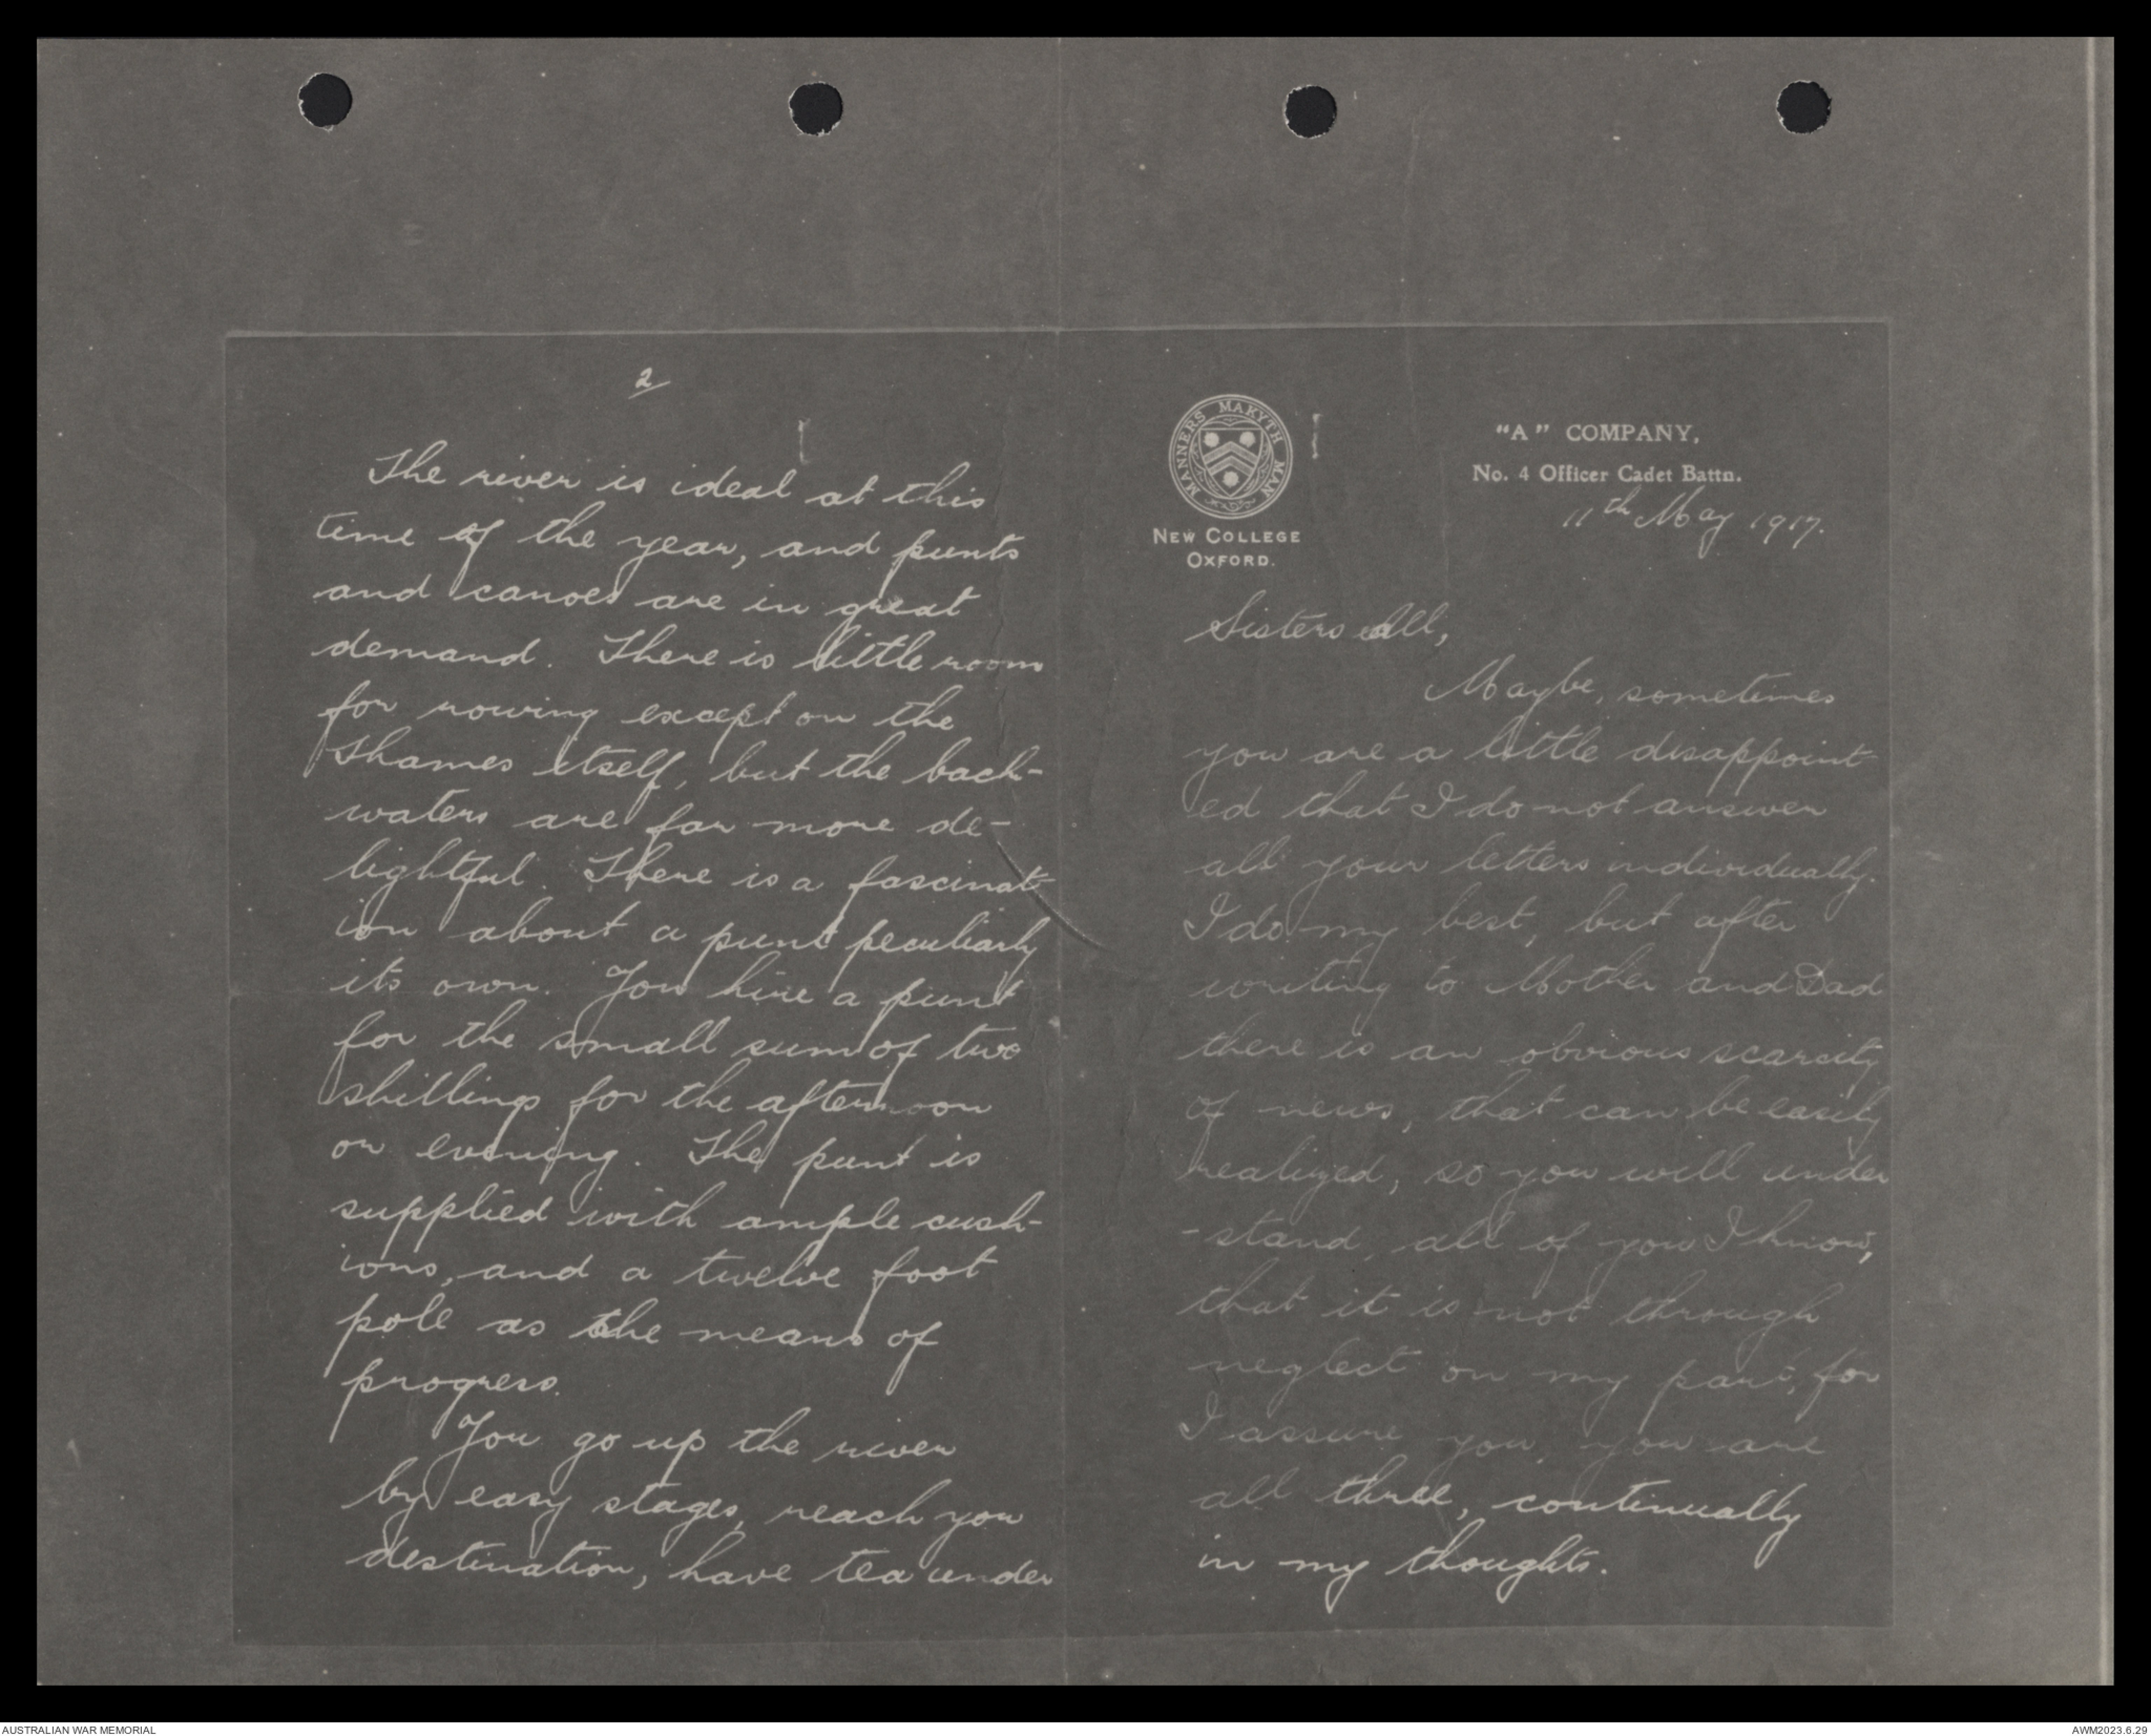 MANNERS MAKYTH MAN
NEW COLLEGE
OXFORD.
"A" COMPANY,
No. 4 Officer Cadet Battn.
11th May 1917.
Sisters all,
Maybe, sometimes
you are a little disappoint
ed that I do not answer
all your letters individually.
I do my best, but after
writing to Mother and Dad
there is an obvious scarcity
of news, that can be easily
realized, so you will under
-stand, all of you I know,
that it is not through
neglect on my part, for
I assure you, you are
all three, continually
in my thoughts.
2
The river is ideal at this
time of the year, and punts
and canoes are in great
demand. There is little room
for rowing except on the
Thames itself, but the back-
waters are far more de-
lightful. There is a fascinat-
ion about a punt peculiarly
its own. You hire a punt
for the small sum of two
shillings for the afternoon
or evening. The punt is
supplied with ample cush-
ions, and a twelve foot
pole as the means of
progress.
You go up the river
by easy stages, reach you
destination, have tea under
AUSTRALIAN WAR MEMORIAL
AWM2023.6.29